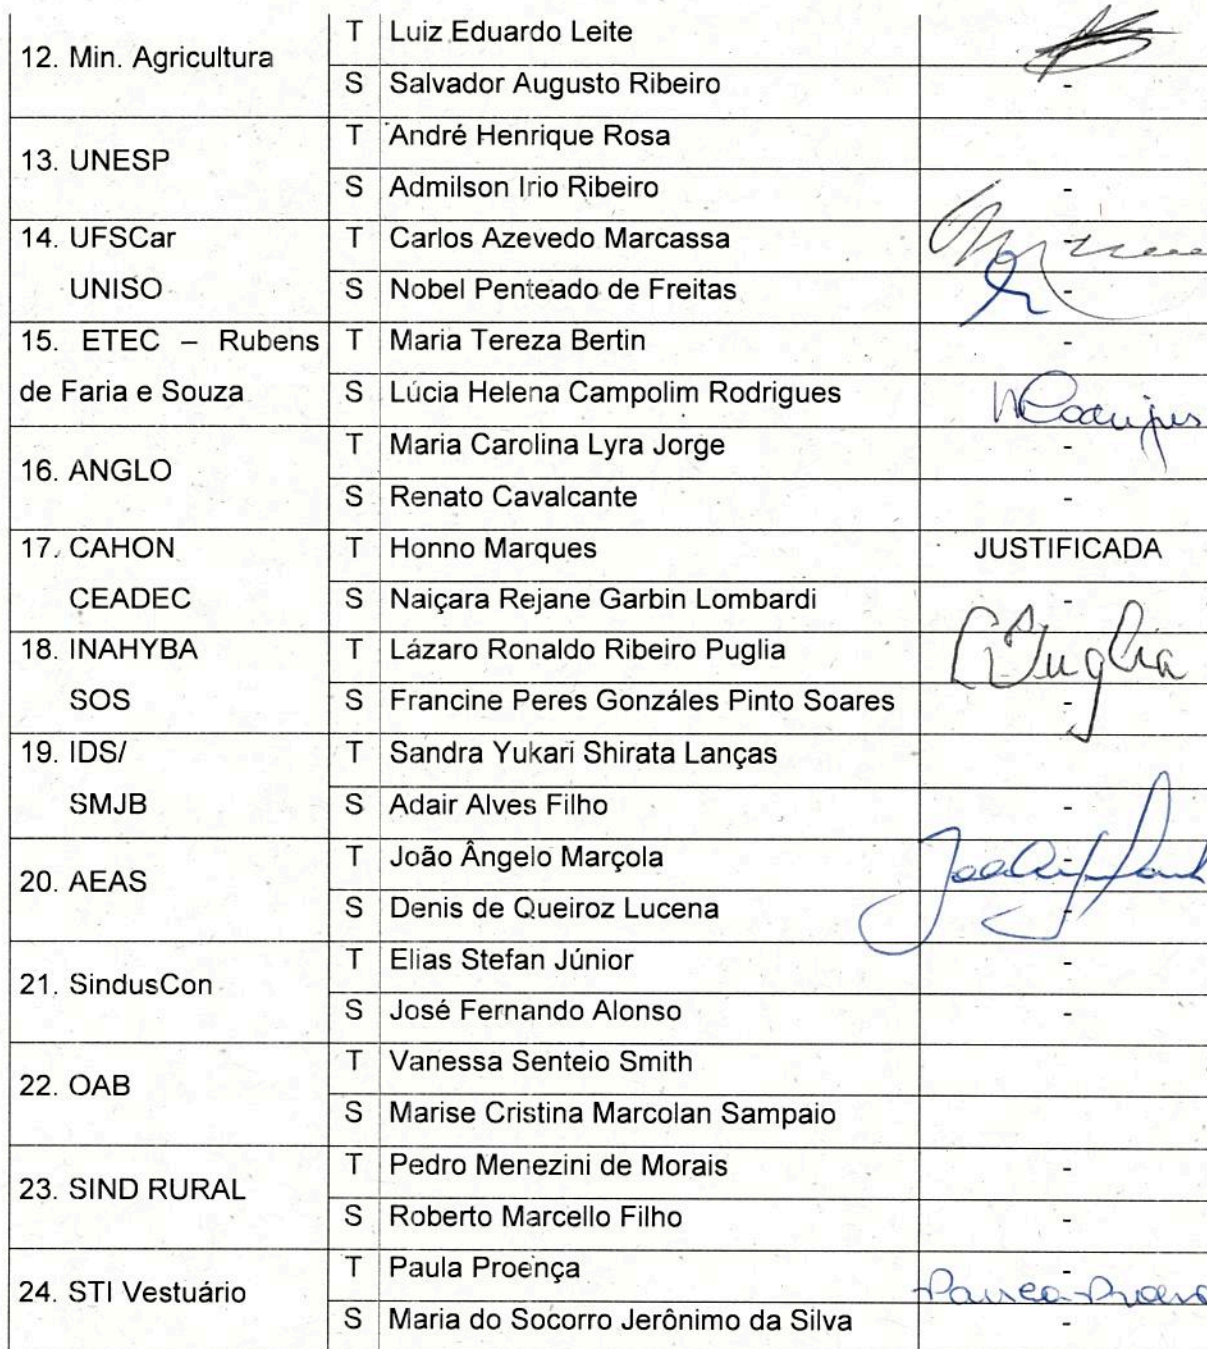 12. Min. Agricultura
T Luiz Eduardo Leite
S Salvador Augusto Ribeiro -
13. UNESP
T André Henrique Rosa
S Admilson Irio Ribeiro -
14. UFSCar
T Carlos Azevedo Marcassa
UNISO
S Nobel Penteado de Freitas -
15. ETEC – Rubens
T Maria Tereza Bertin -
de Faria e Souza
S Lúcia Helena Campolim Rodrigues
16. ANGLO
T Maria Carolina Lyra Jorge -
S Renato Cavalcante -
17. CAHON
T Honno Marques JUSTIFICADA
CEADEC
S Naiçara Rejane Garbin Lombardi -
18. INAHYBA
T Lázaro Ronaldo Ribeiro Puglia Puglia
SOS
S Francine Peres Gonzáles Pinto Soares -
19. IDS/
T Sandra Yukari Shirata Lanças
SMJB
S Adair Alves Filho -
20. AEAS
T João Ângelo Marçola -
S Denis de Queiroz Lucena -
21. SindusCon
T Elias Stefan Júnior -
S José Fernando Alonso -
22. OAB
T Vanessa Senteio Smith
S Marise Cristina Marcolan Sampaio
23. SIND RURAL
T Pedro Menezini de Morais -
S Roberto Marcello Filho -
24. STI Vestuário
T Paula Proença -
S Maria do Socorro Jerônimo da Silva -